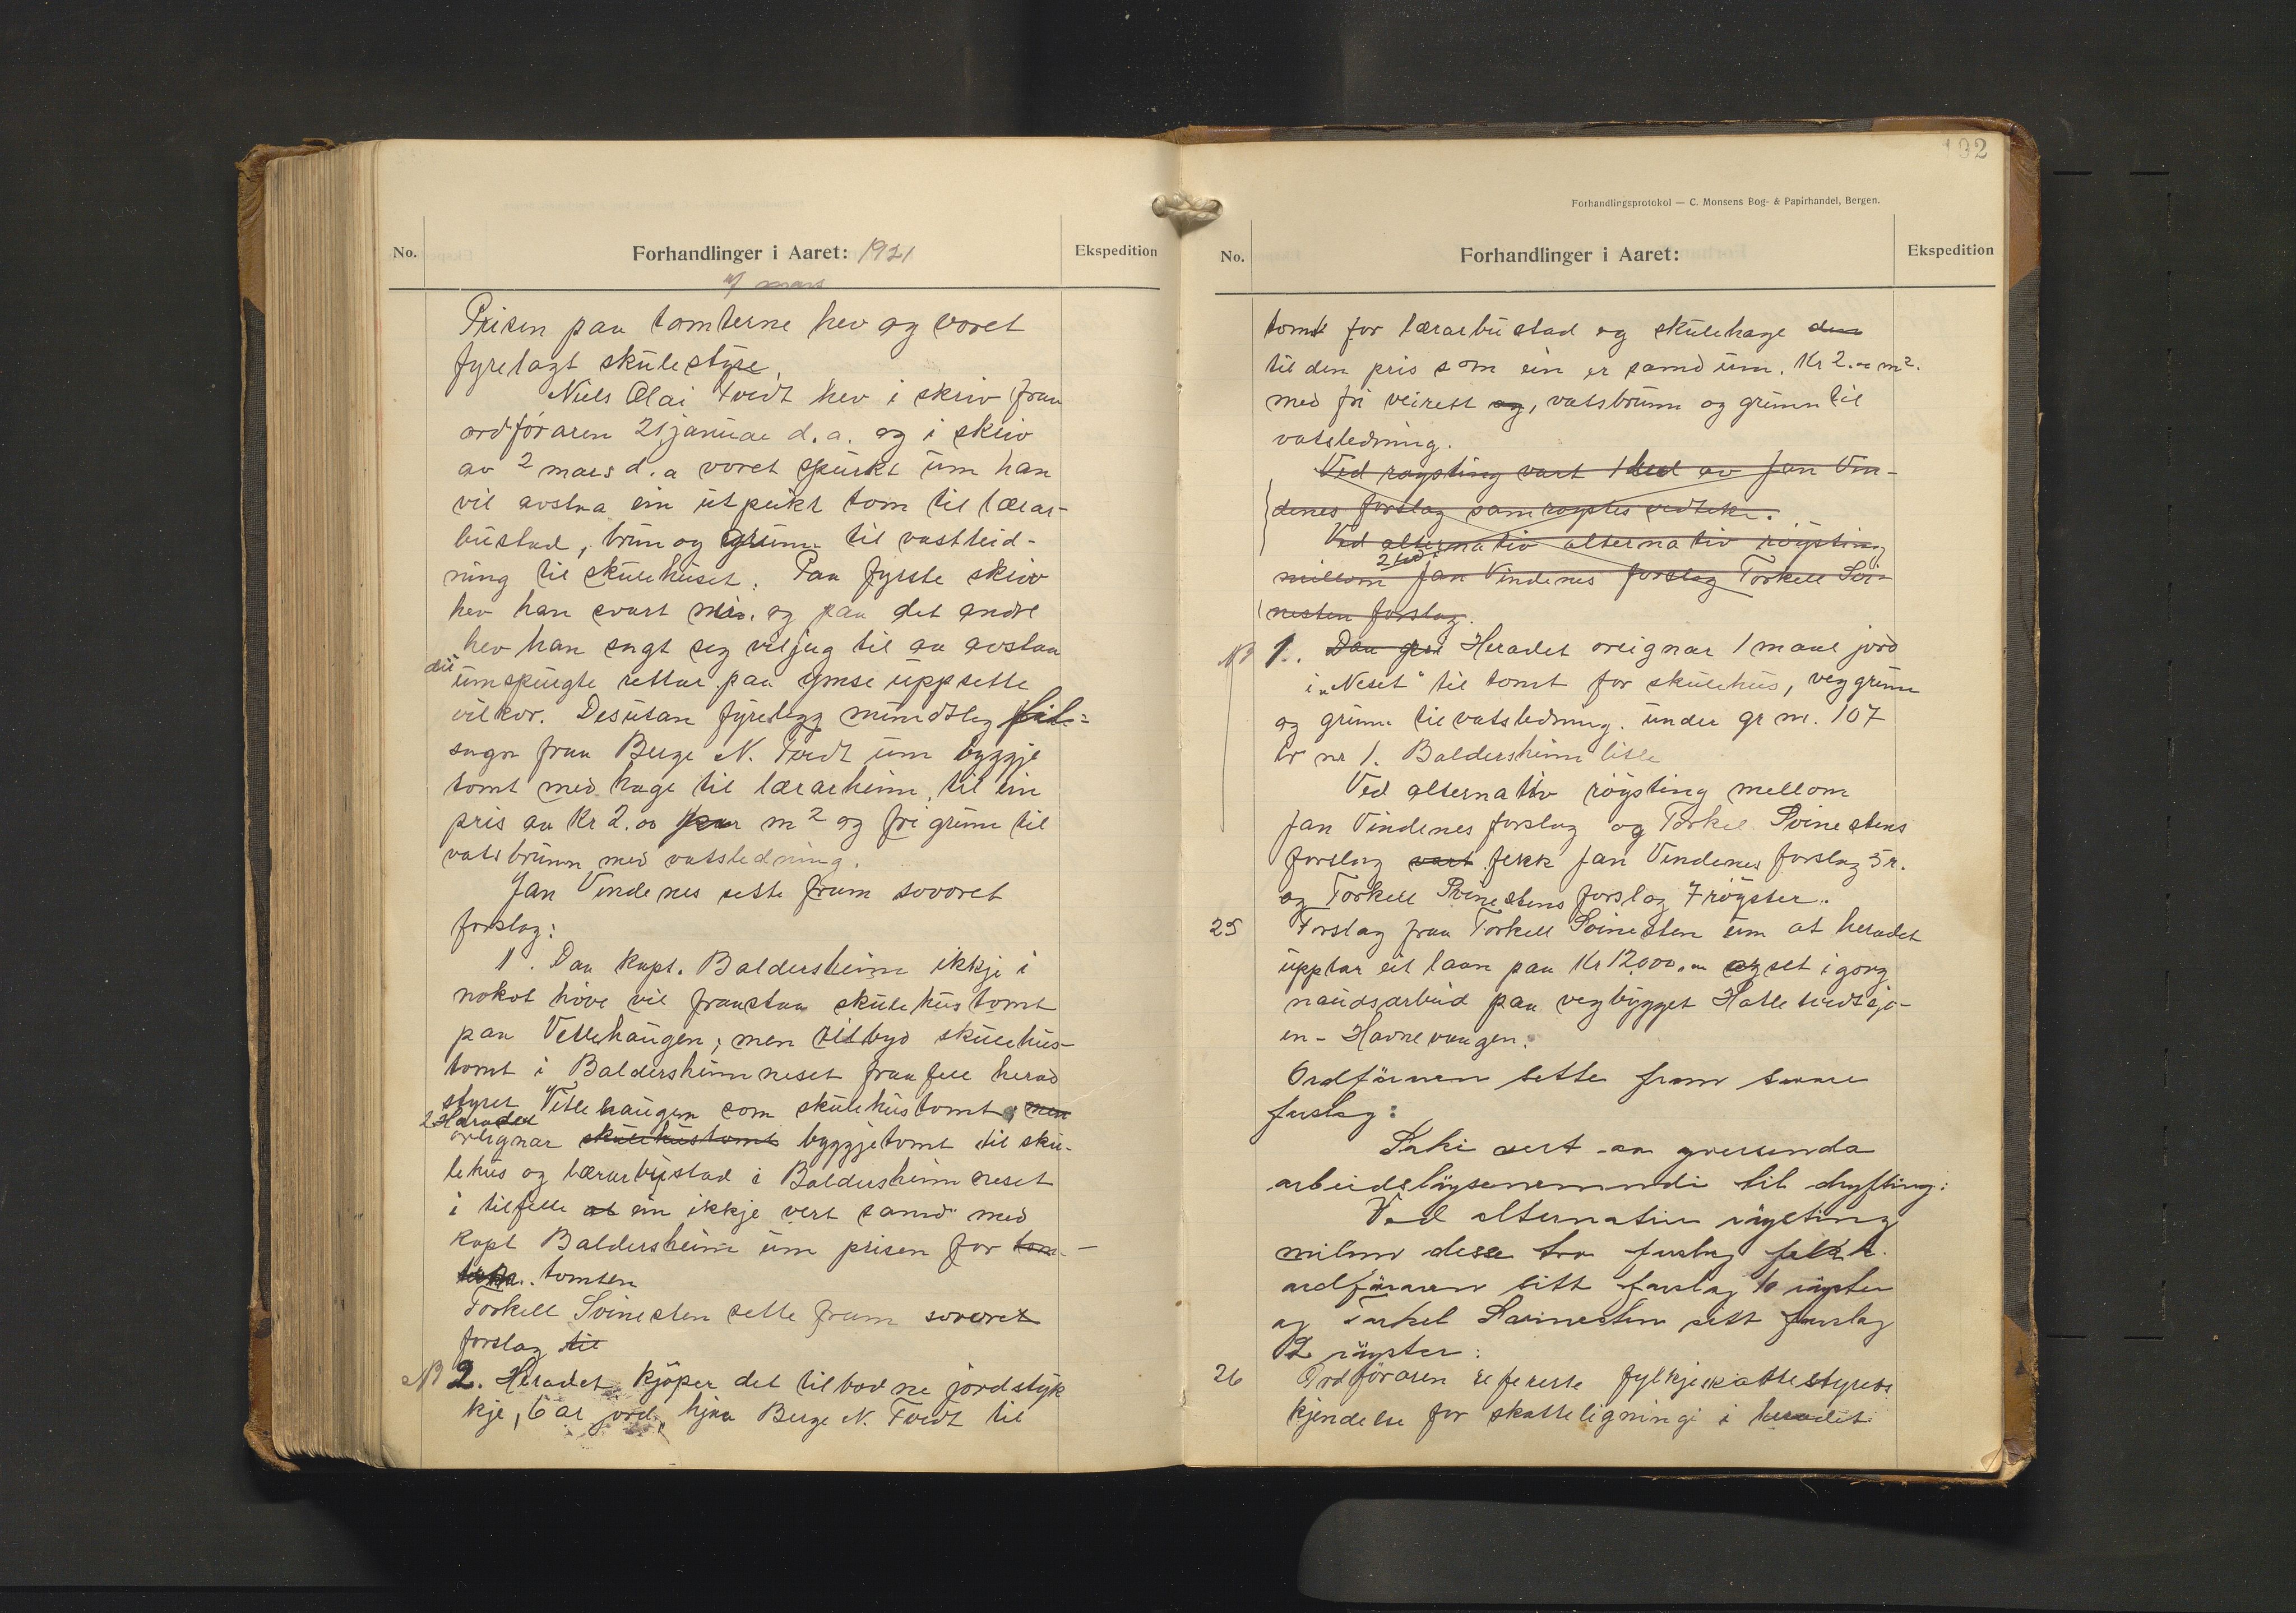 No.
Forhandlinger i Aaret: 1921
Ekspedition
mars
Prisen paa tomterne hev og voret
fyrelagt skulestyre.
Niels Olai Tvedt hev i skriv fraa
ordföraren 21 januar d.a. og i skriv
av 2 mars d.a voret spurkt um han
vil avstaa ein utpeikt tom til lærar-
bustad, brun og grunn til vastleid-
ning til skulehuset. Paa fyrste skriv
hev han svart nei. og paa det andre
hev han sagt seg viljug til aa avstaa
dei
umspurgte rettar paa ymse uppsette
vilkor. Desutan fyreligg mundtleg til-
sagn fraa Berge N. Tvedt um byggje
tomt med hage til lærarheim, til ein
pris av Kr 2.00 per m2 og fri grunn til
vatsbrunn med vatsledning.
Jan Vindenes sette fram sovoret
forslag:
1. Daa kapt. Baldersheim ikkje i
nokot höve vil fraastaa skulehustomt
paa Vetlehaugen; men tilbyd skulehus-
tomt i Baldersheimneset fraafell herad
styret Vetlehaugen som skulehustomt; men
2 Heradet
oreignar skulehustomt byggjetomt til sku-
lehus og lærarbustad i Baldersheimneset
i tilfelle at ein ikkje vert samd med
kapt Baldersheim um prisen for tom-
tomten
Torkell Svinesten sette fram sovoret
forslag til
NB 2. Heradet kjöper det tilbodne jordstyk
kje, 6 ar jord, hjaa Berge N. Tvedt til
102
Forhandlingsprotokol — C. Monsens Bog- & Papirhandel, Bergen.
No.
Forhandlinger i Aaret:
Ekspedition
tomt for lærarbustad og skulehage den
til den pris som ein er samd um. Kr 2.00 m2.
med fri veirett og, vatsbrunn og grunn til
vatsledning.
Ved røysting vart 1 led av Jan Vin-
denes forslag samrøystes vedteke.
Ved alternativ alternativ röysting
2 led i
millom Jan Vindenes forslag Torkell Svi-
nesten forslag.
NB 1. Heradet oreignar 1 maal jord
i "Neset" til tomt for skulehus, veggrunn
og grunn til vatsledning. under gr nr. 107
br nr 1. Baldersheim litle
Ved alternativ röysting mellom
Jan Vindenes forslag og Torkel Svinestens
forslag vart fekk Jan Vindenes forslag 5 r.
og Torkell Svinestens forslag 7 röyster.
25 Forslag fraa Torkell Svinesten um at heradet
upptar eit laan paa Kr 12000.00 og set i gong
naudsarbeid paa vegbygget Hatletvedtsjö-
en - Havnevaagen.
Ordföraren sette fram
forslag:
Saki vert aa yversenda
arbeidslöysenemndi til dryfting:
Ved alternativ röysting
millom desse tvo forslag fekk
ordföraren sitt forslag 10 röyster
og Torkel Svinesten sitt forslag
2 röyster.
26 Ordföraren refererte fylkjeskattestyrets
kjendelse for skatteligningi i heradet